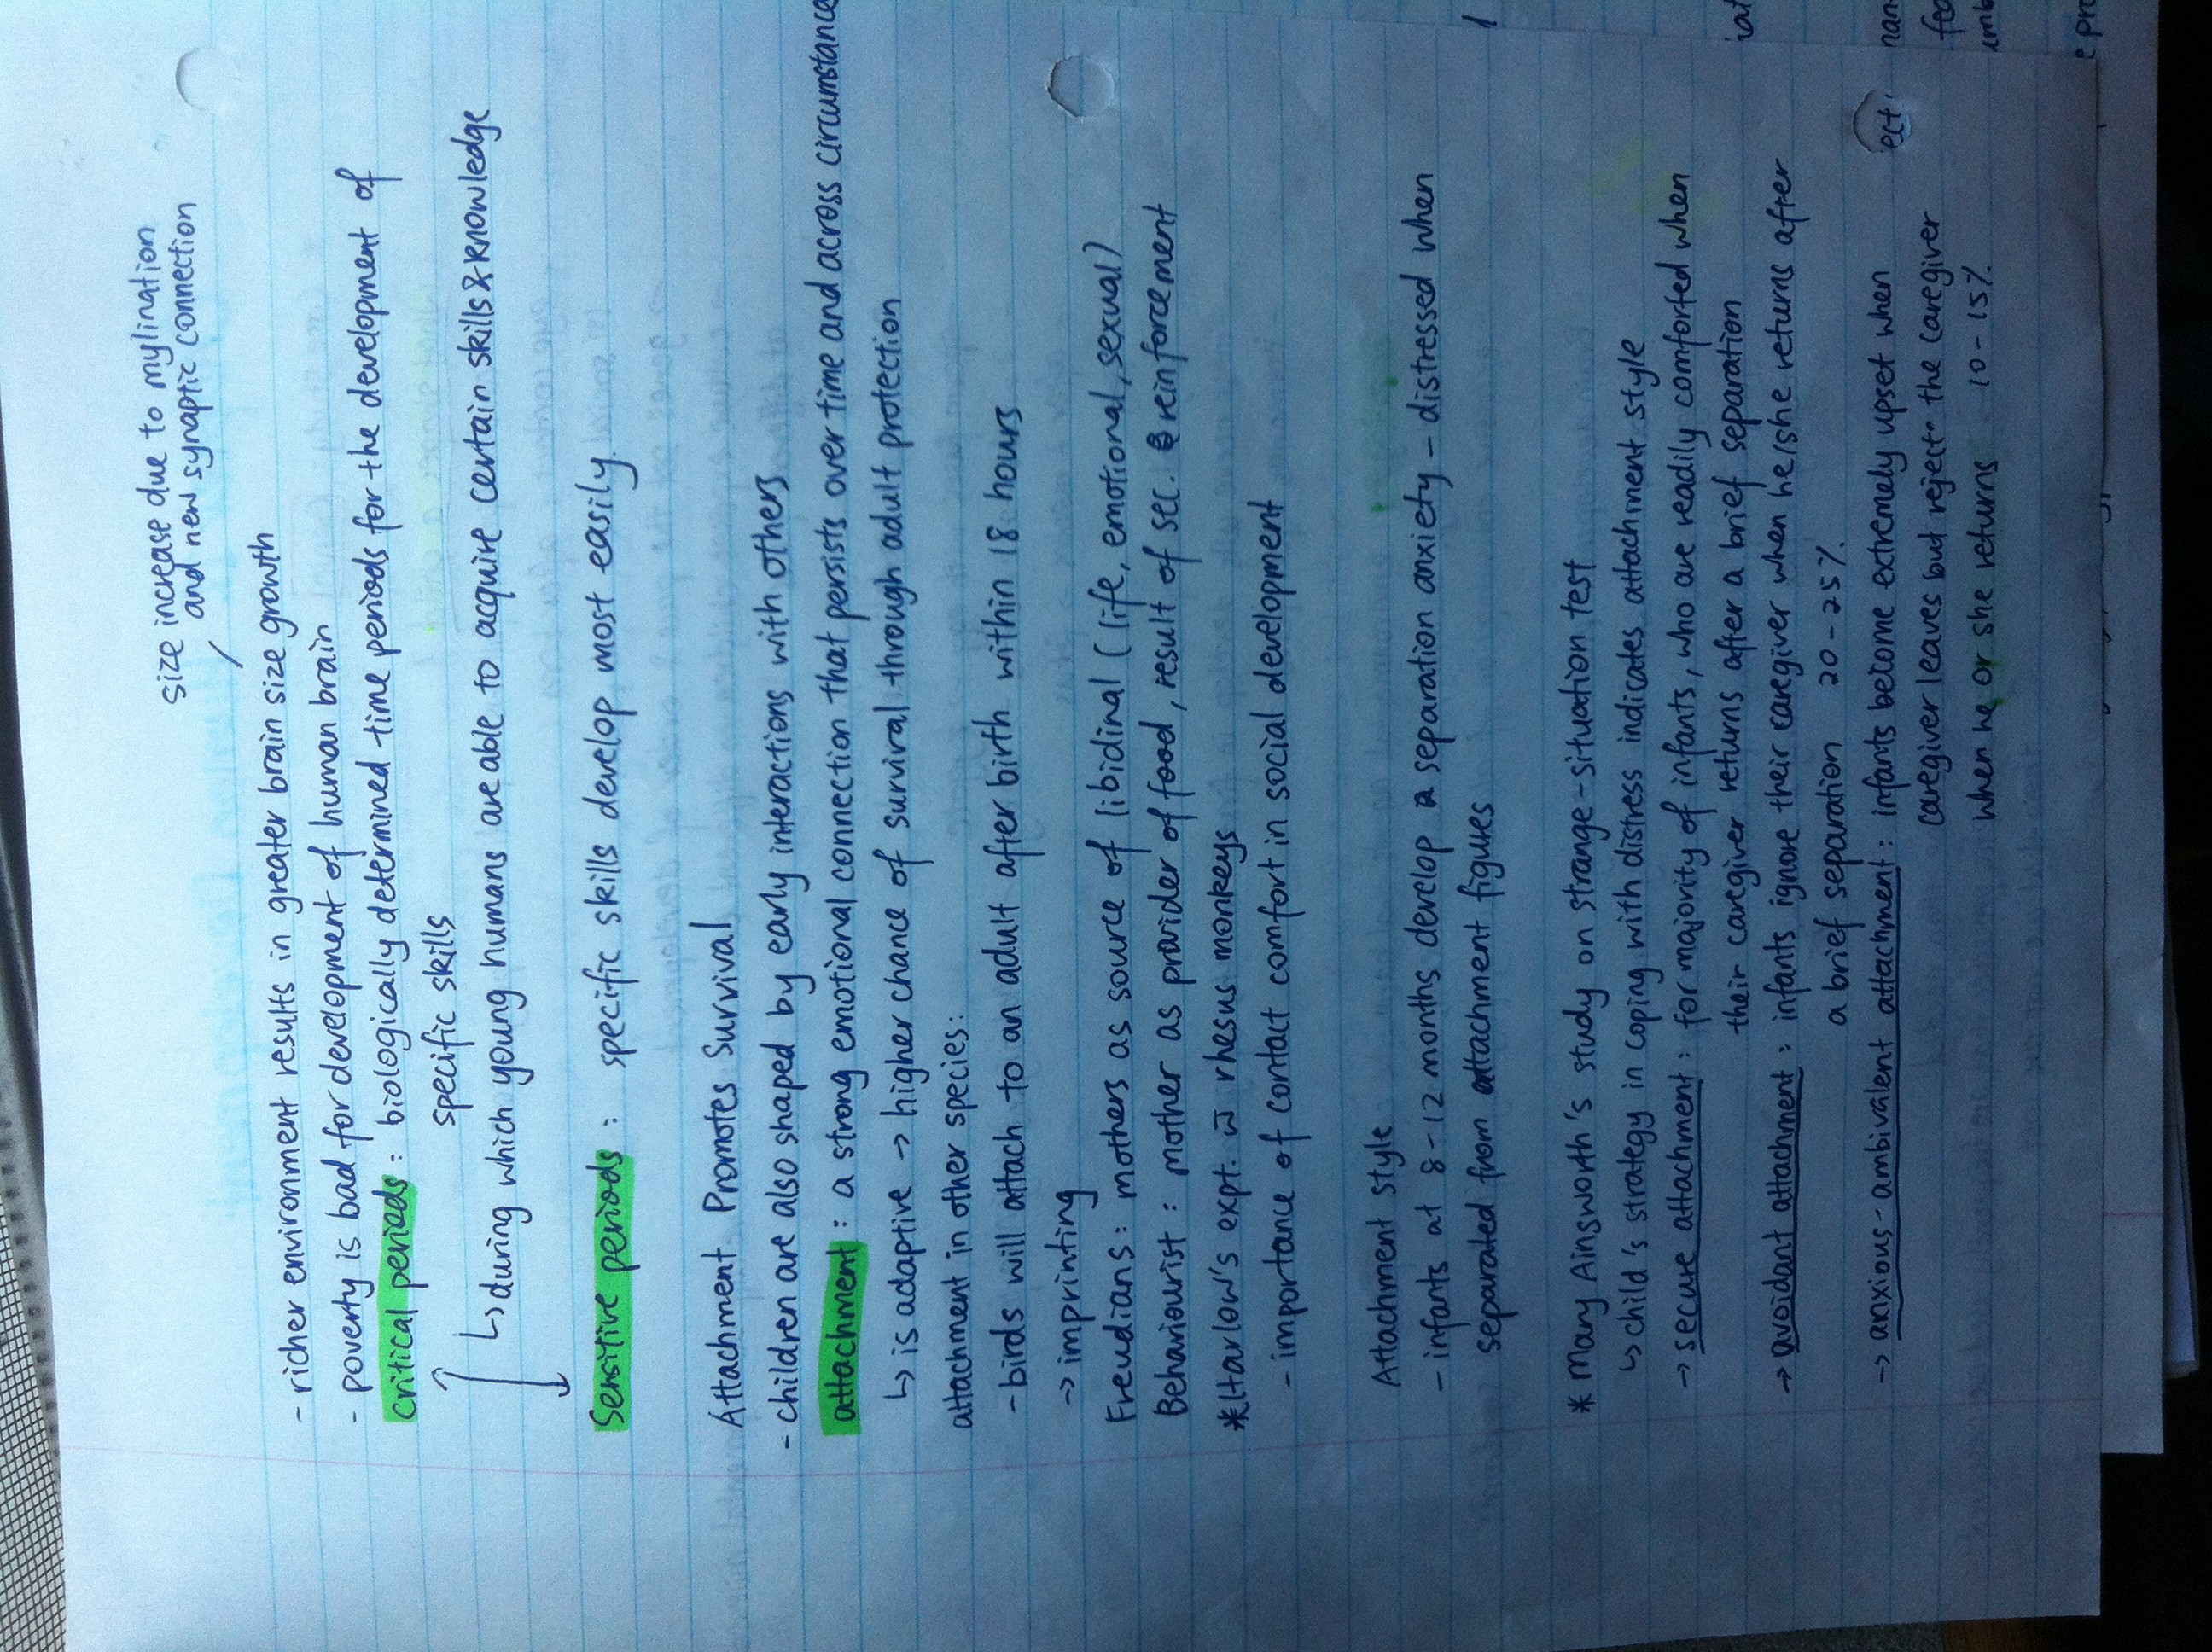 size increase due to mylination
and new synaptic connection
- richer environment results in greater brain size growth
- poverty is bad for development of human brain
critical periods : biologically determined time periods for the development of
specific skills
↳ during which young humans are able to acquire certain skills & knowledge
sensitive periods : specific skills develop most easily.
Attachment Promotes Survival
- children are also shaped by early interactions with others
attachment : a strong emotional connection that persists over time and across circumstance
↳ is adaptive → higher chance of survival through adult protection
attachment in other species:
- birds will attach to an adult after birth within 18 hours
→ imprinting
Freudians : mothers as source of libidinal (life, emotional, sexual)
Behaviourist : mother as provider of food, result of sec. reinforcement
*Harlow's expt. w rhesus monkeys
- importance of contact comfort in social development
Attachment style
- infants at 8-12 months develop a separation anxiety - distressed when
separated from attachment figures
* Mary Ainsworth's study on strange-situation test
↳ child's strategy in coping with distress indicates attachment style
→ secure attachment : for majority of infants, who are readily comforted when
their caregiver returns after a brief separation
→ avoidant attachment : infants ignore their caregiver when he/she returns after
a brief separation 20-25%.
→ anxious-ambivalent attachment : infants become extremely upset when
caregiver leaves but reject the caregiver
when he or she returns 10-15%.
ect.